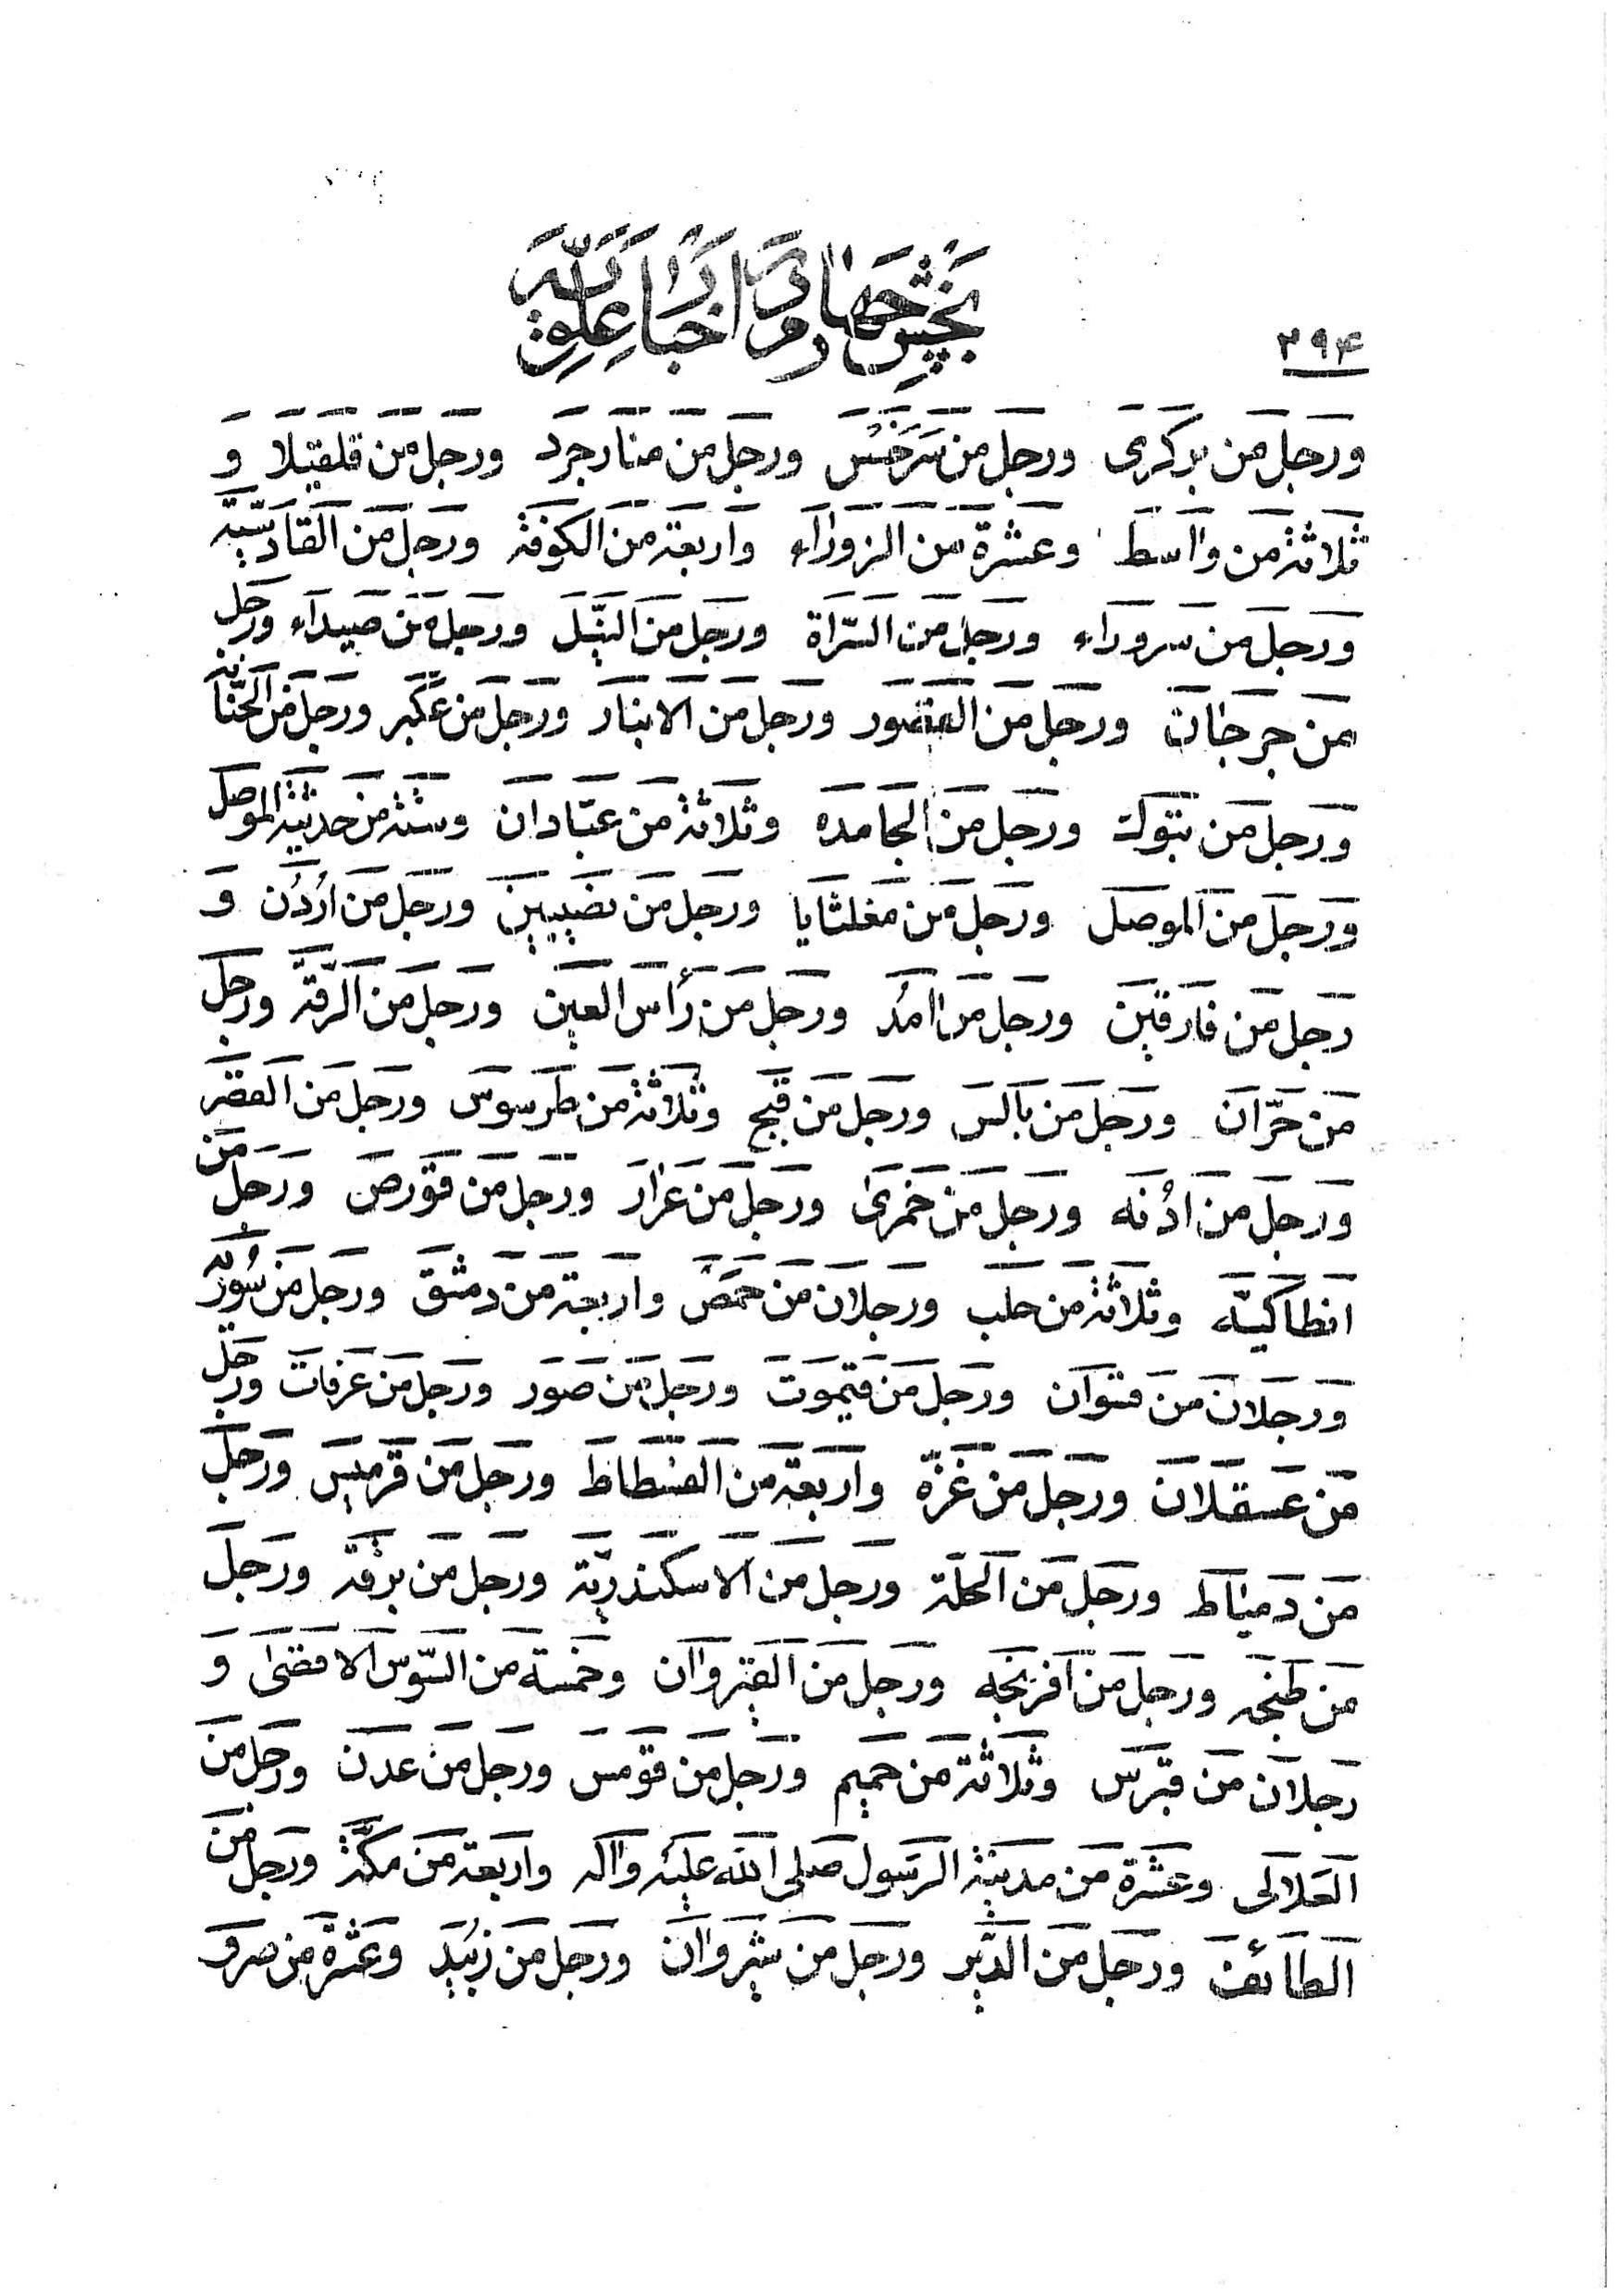 بخش چهارم در اخبار علویه
۲۹۴
ورجل من برکری ورجل من سرخس ورجل من منارجرد ورجل من قلقیلا و
ثلاثة من واسط وعشرة من الزوراء واربعة من الکوفة ورجل من القادسیة
ورجل من سروراء ورجل من السراة ورجل من النیل ورجل من صیداء ورجل
من جرجان ورجل من القصور ورجل من الانبار ورجل من عکبر ورجل من الحنانه
ورجل من تبوک ورجل من الجامده وثلاثة من عبّادان وستة من حدیثة الموصل
ورجل من الموصل ورجل من مغلثایا ورجل من نصیبین ورجل من اُردُن و
رجل من فارقین ورجل من اامد ورجل من رأس العین ورجل من الرّقّة ورجل
من حرّان ورجل من بالس ورجل من قبج وثلاثة من طرسوس ورجل من القصر
ورجل من ادُنه ورجل من خمری ورجل من عرار ورجل من قورص ورجل من
انطاکیّه وثلاثة من حلب ورجلان من حمص واربعة من دمشق ورجل من سُوریّه
ورجلان من قنوان ورجل من قیموت ورجل من صور ورجل من عرفات ورجل
من عسقلان ورجل من غزّة واربعة من الفسطاط ورجل من قرمیس ورجل
من دمیاط ورجل من المحلّة ورجل من الاسکندریّة ورجل من برقة ورجل
من طنجه ورجل من افرنجه ورجل من القیروان وخمسة من السّوس الاقصی و
رجلان من قبرس وثلاثة من حمیم ورجل من قومس ورجل من عدن ورجل من
العلالی وعشرة من مدینة الرسول صلی الله علیه وآله واربعة من مکّة ورجل من
الطائف ورجل من الدّیر ورجل من شیروان ورجل من زبید وعشرة من مرو